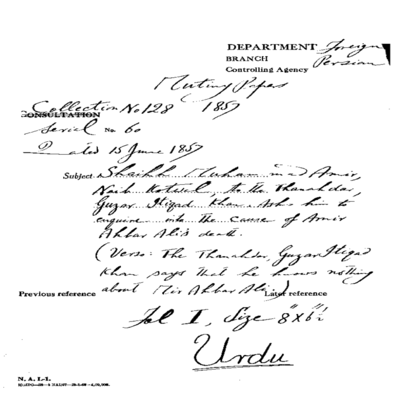 DEPARTMENT Foreign
BRANCH Persian
Controlling Agency
Mutiny Papers
Collection No 128 1857
CONSULTATION
Serial No 60
Dated 15 June 1857
Subject Shaikh Muhammad Amir,
Naib Kotwal, to the Thanahdar,
Guzar Itiqad Khan. Asks him to
enquire into the cause of Amir
Akbar Ali's death.
(Verso: The Thanahdar, Guzar Itiqad
Khan says that he knows nothing
about Mir Akbar Ali.)
Previous reference Later reference
Fol I, Size 8"x6½"
Urdu
N. A. I.-1.